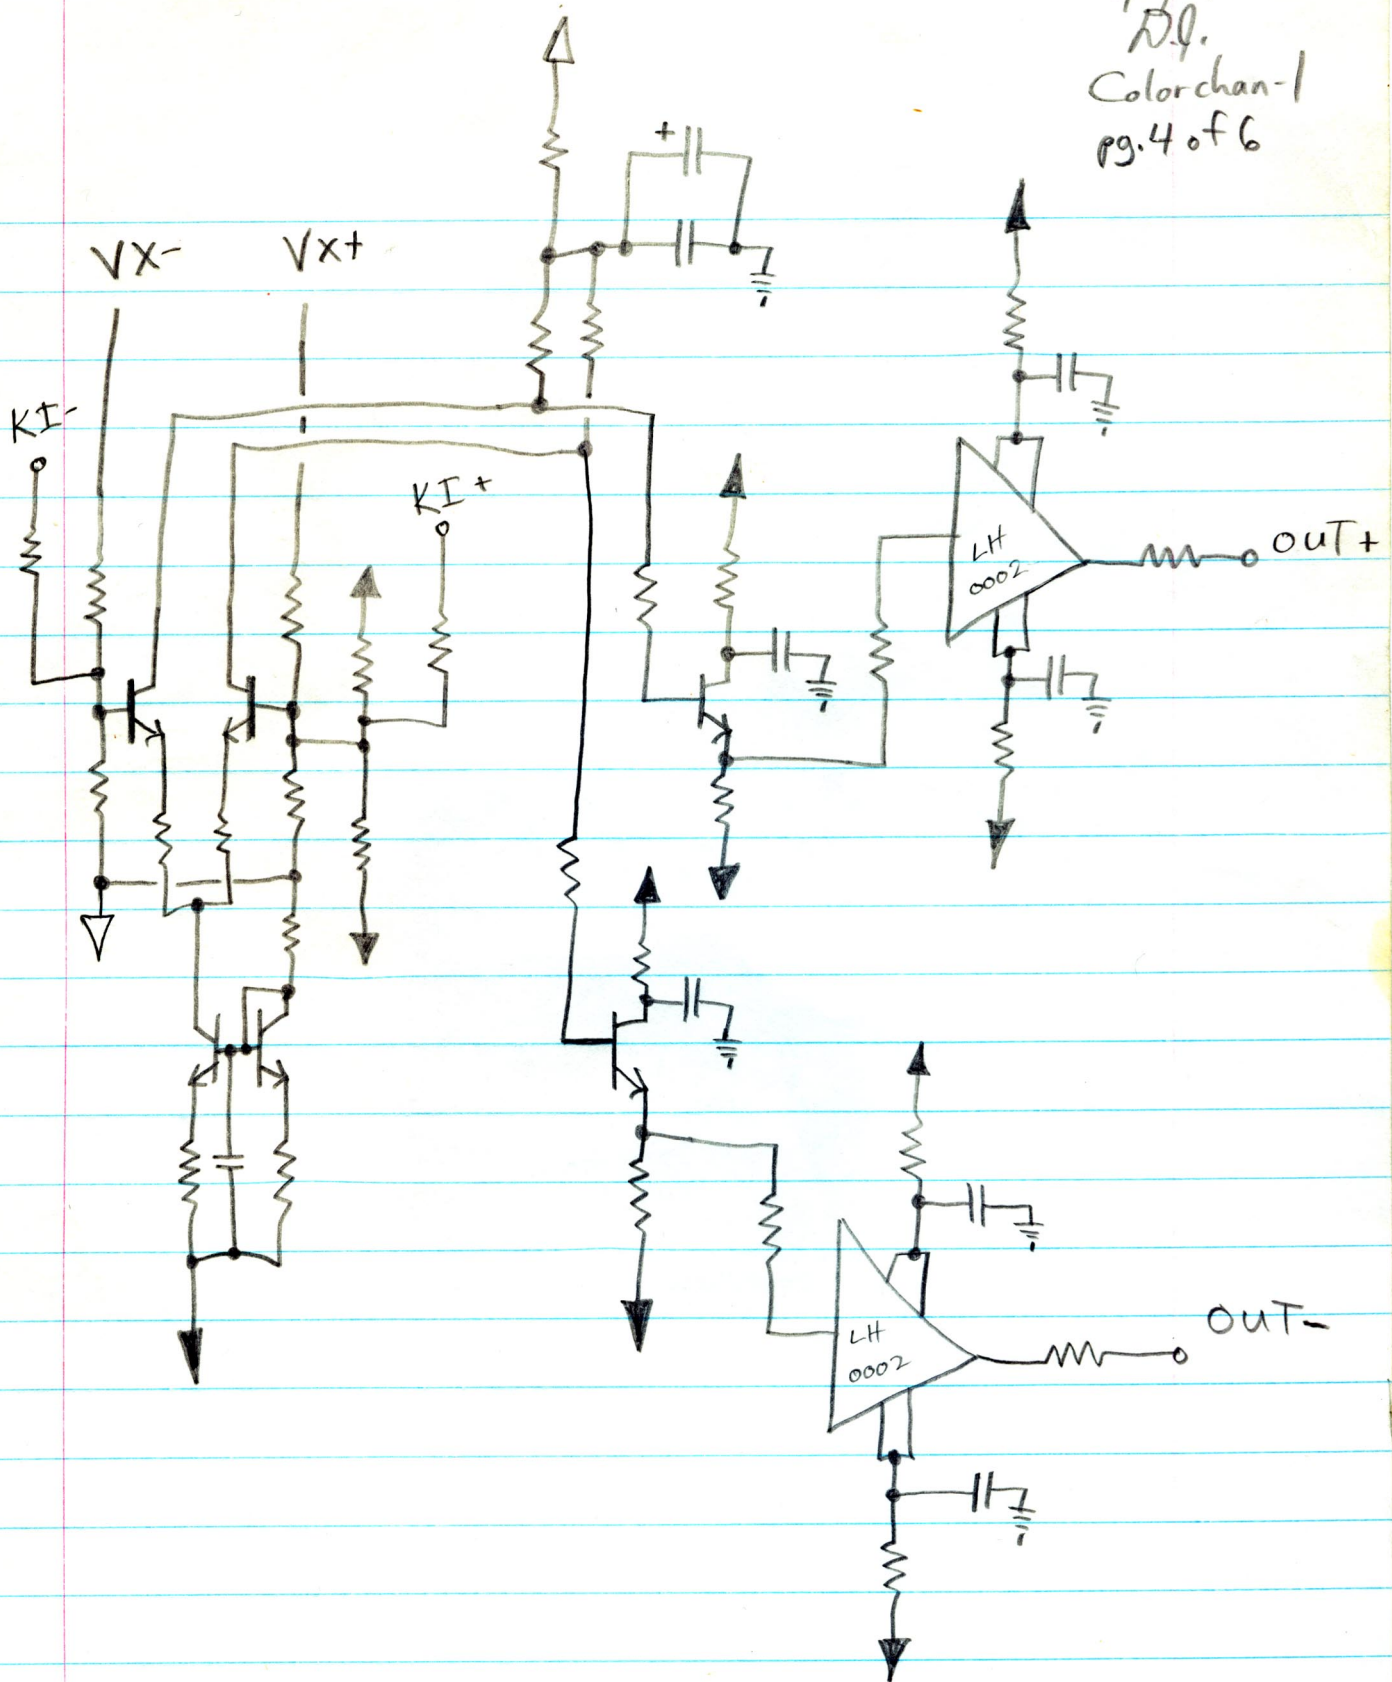 D.J.
Colorchan-1
pg.4 of 6
VX-
VX+
KI-
KI+
LH
0002
OUT+
LH
0002
OUT-
+